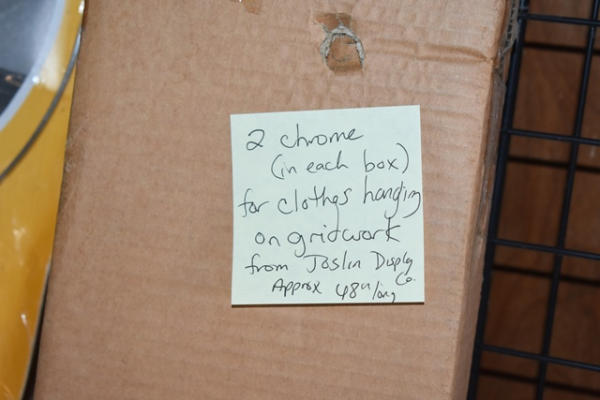 2 chrome
(in each box)
for clothes hanging
on gridwork
from Joslin Display
Co.
Approx 48" long